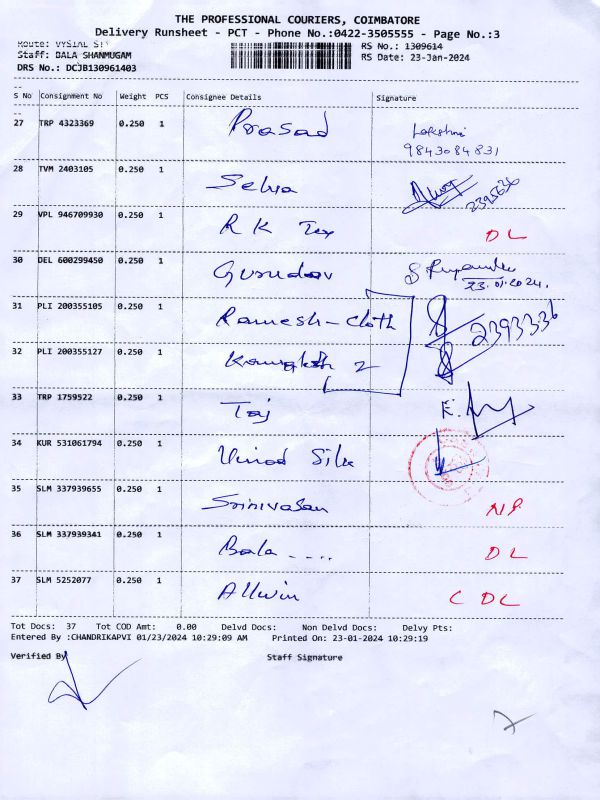 THE PROFESSIONAL COURIERS, COIMBATORE
Delivery Runsheet - PCT - Phone No.:0422-3505555 - Page No.:3
Route:
RS No.: 1309614
Staff: BALA SHANMUGAM
RS Date: 23-Jan-2024
DRS No.: DCJB130961403
S No Consignment No Weight PCS Consignee Details Signature
27 TRP 4323369 0.250 1 Prasad Lakshmi
9843084831
28 TVM 2403105 0.250 1 Selva 2395636
29 VPL 946709930 0.250 1 R K Tex DL
30 DEL 600299450 0.250 1 Gurudev
23.01.2024.
31 PLI 200355105 0.250 1 Ramesh-Cloth 2393336
32 PLI 200355127 0.250 1 2
33 TRP 1759522 0.250 1 Taj
34 KUR 531061794 0.250 1 Vinod Silk
35 SLM 337939655 0.250 1 Srinivasan NP
36 SLM 337939341 0.250 1 Bala .... DL
37 SLM 5252077 0.250 1 Allwin C DL
Tot Docs: 37 Tot COD Amt: 0.00 Delvd Docs: Non Delvd Docs: Delvy Pts:
Entered By :CHANDRIKAPVI 01/23/2024 10:29:09 AM Printed On: 23-01-2024 10:29:19
Verified By Staff Signature